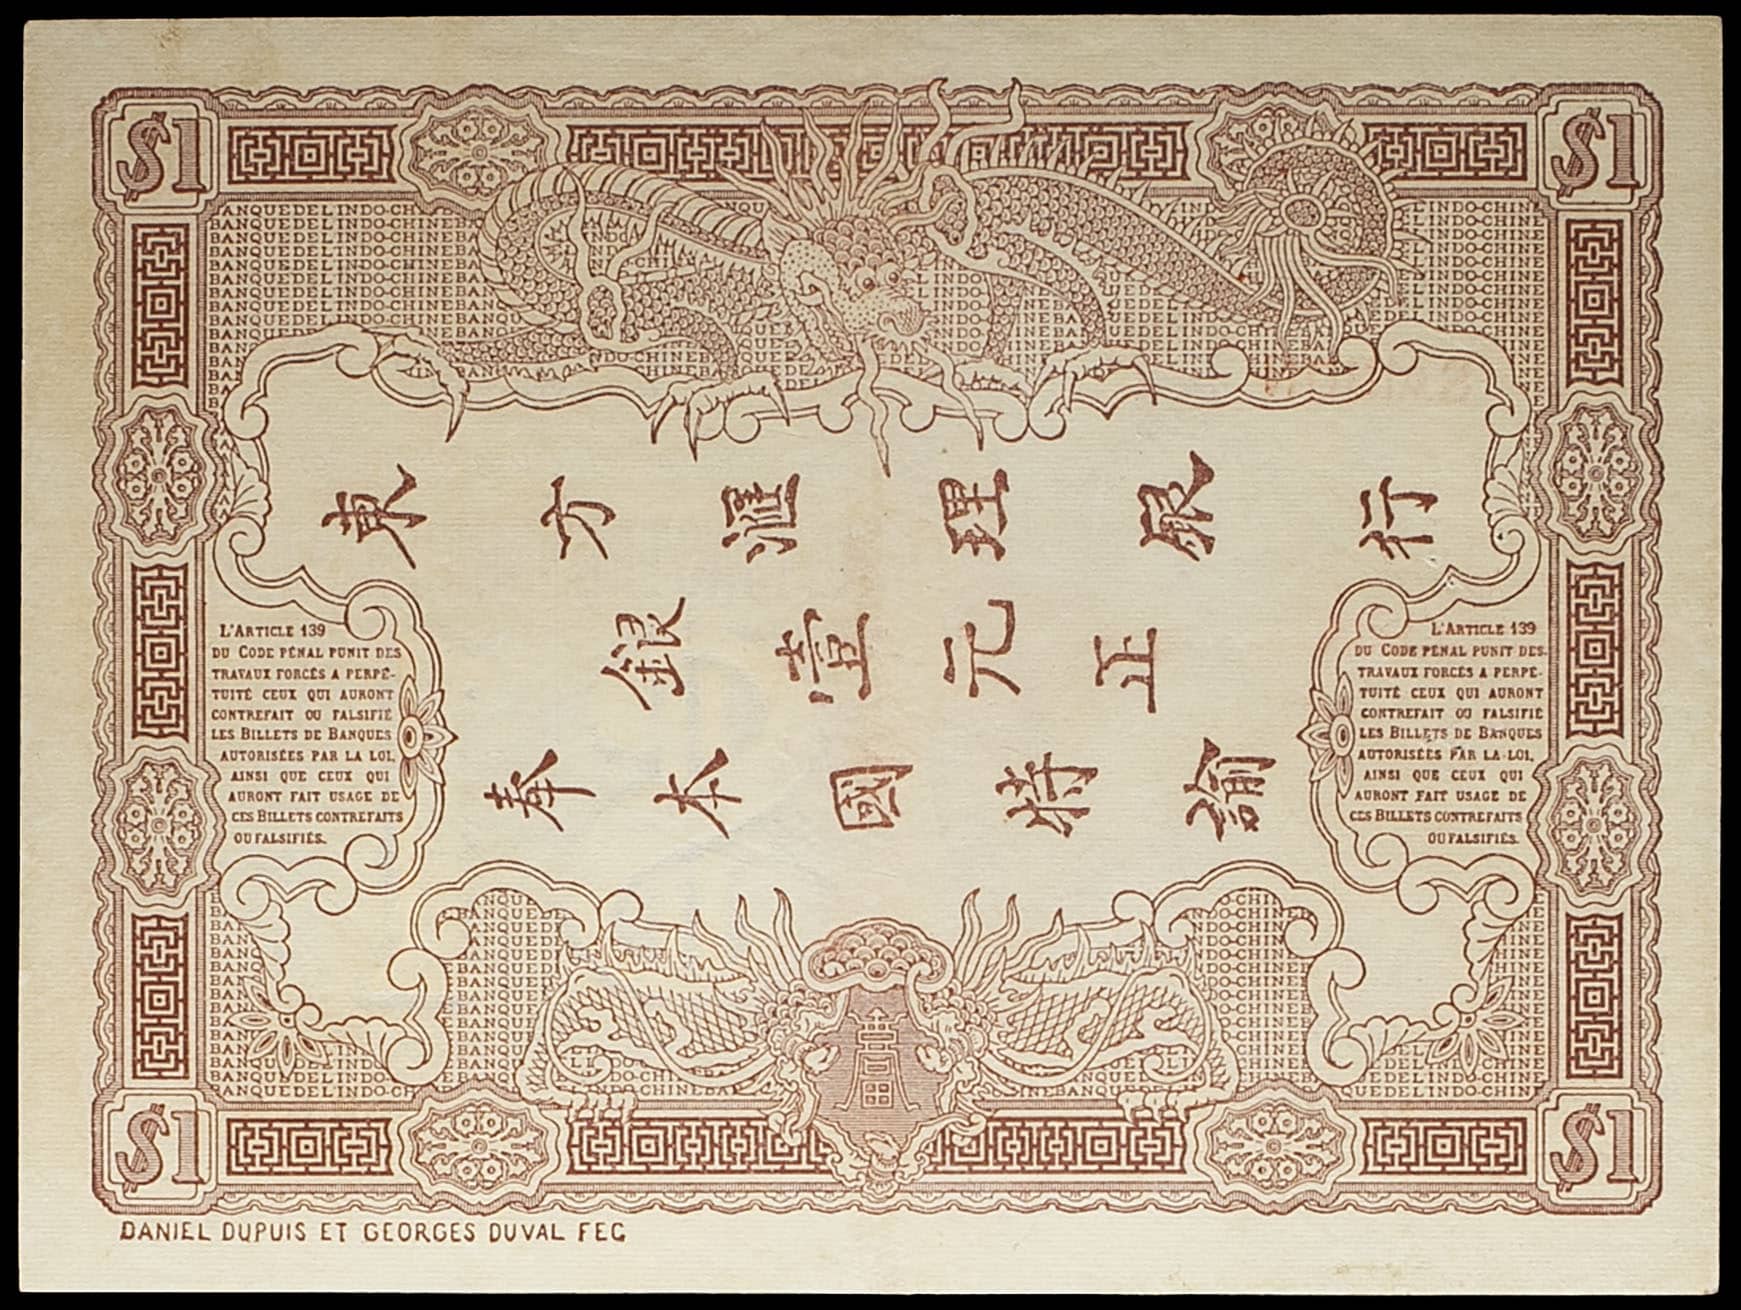 $1
$1
BANQUEDELINDO-CHINE
東方滙理銀行
銀壹元正
奉本國特諭
L'ARTICLE 139
DU CODE PÉNAL PUNIT DES
TRAVAUX FORCÉS A PERPÉ-
TUITÉ CEUX QUI AURONT
CONTREFAIT OU FALSIFIÉ
LES BILLETS DE BANQUES
AUTORISÉES PAR LA LOI,
AINSI QUE CEUX QUI
AURONT FAIT USAGE DE
CES BILLETS CONTREFAITS
OU FALSIFIÉS.
L'ARTICLE 139
DU CODE PÉNAL PUNIT DES
TRAVAUX FORCÉS A PERPÉ-
TUITÉ CEUX QUI AURONT
CONTREFAIT OU FALSIFIÉ
LES BILLETS DE BANQUES
AUTORISÉES PAR LA LOI,
AINSI QUE CEUX QUI
AURONT FAIT USAGE DE
CES BILLETS CONTREFAITS
OU FALSIFIÉS.
$1
$1
DANIEL DUPUIS ET GEORGES DUVAL FEC